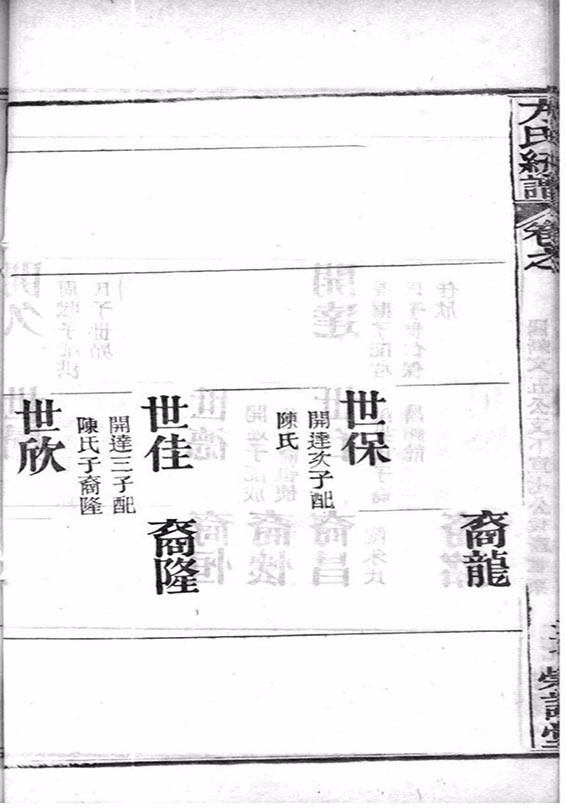 方氏紉譜
卷之
裔龍
世保
開達次子配
陳氏
世佳
開達三子配
陳氏子裔隆
裔隆
世欣